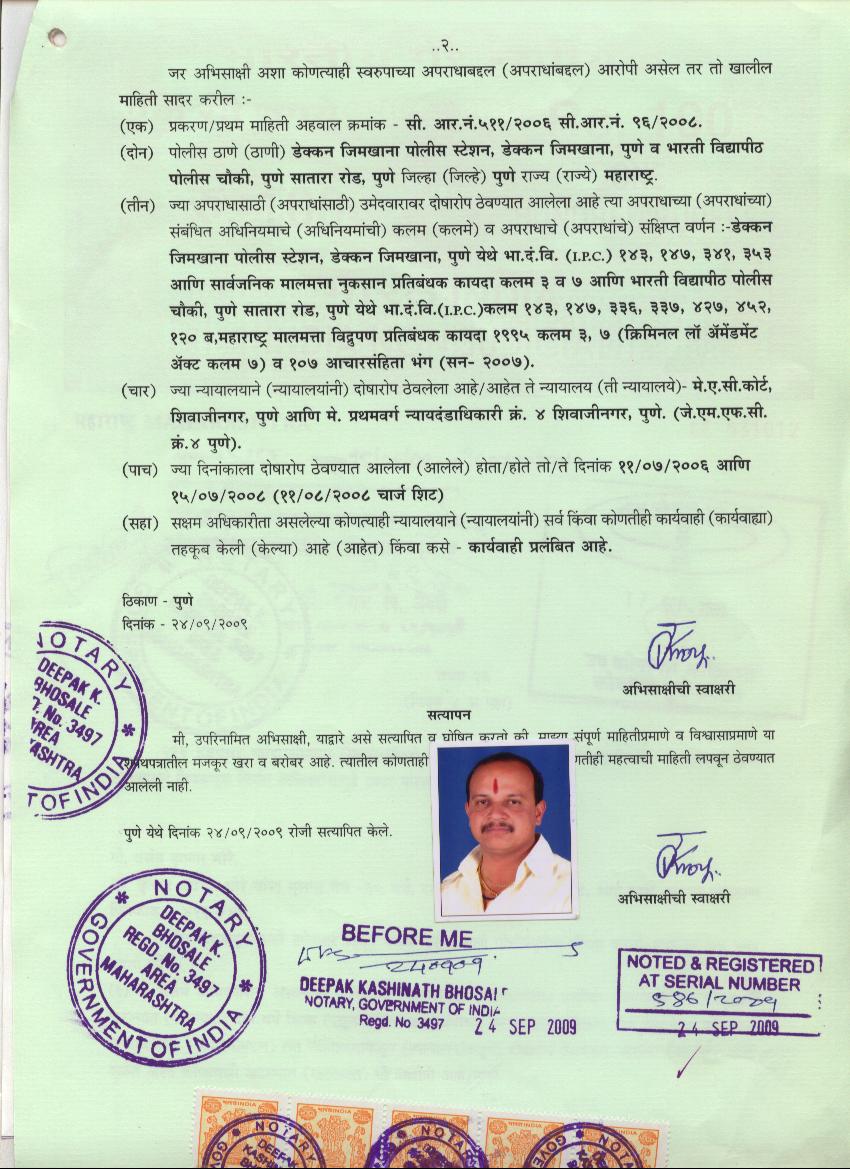 ..२..
जर अभिसाक्षी अशा कोणत्याही स्वरुपाच्या अपराधाबद्दल (अपराधांबद्दल) आरोपी असेल तर तो खालील
माहिती सादर करील :-
(एक) प्रकरण/प्रथम माहिती अहवाल क्रमांक - सी. आर.नं.५११/२००६ सी.आर.नं. ९६/२००८.
(दोन) पोलीस ठाणे (ठाणी) डेक्कन जिमखाना पोलीस स्टेशन, डेक्कन जिमखाना, पुणे व भारती विद्यापीठ
पोलीस चौकी, पुणे सातारा रोड, पुणे जिल्हा (जिल्हे) पुणे राज्य (राज्ये) महाराष्ट्र.
(तीन) ज्या अपराधासाठी (अपराधांसाठी) उमेदवारावर दोषारोप ठेवण्यात आलेला आहे त्या अपराधाच्या (अपराधांच्या)
संबंधित अधिनियमाचे (अधिनियमांची) कलम (कलमे) व अपराधाचे (अपराधांचे) संक्षिप्त वर्णन :-डेक्कन
जिमखाना पोलीस स्टेशन, डेक्कन जिमखाना, पुणे येथे भा.दं.वि. (I.P.C.) १४३, १४७, ३४१, ३५३
आणि सार्वजनिक मालमत्ता नुकसान प्रतिबंधक कायदा कलम ३ व ७ आणि भारती विद्यापीठ पोलीस
चौकी, पुणे सातारा रोड, पुणे येथे भा.दं.वि.(I.P.C.)कलम १४३, १४७, ३३६, ३३७, ४२७, ४५२,
१२० ब,महाराष्ट्र मालमत्ता विद्रुपण प्रतिबंधक कायदा १९९५ कलम ३, ७ (क्रिमिनल लॉ ॲमेंडमेंट
ॲक्ट कलम ७) व १०७ आचारसंहिता भंग (सन- २००७).
(चार) ज्या न्यायालयाने (न्यायालयांनी) दोषारोप ठेवलेला आहे/आहेत ते न्यायालय (ती न्यायालये)- मे.ए.सी.कोर्ट,
शिवाजीनगर, पुणे आणि मे. प्रथमवर्ग न्यायदंडाधिकारी क्रं. ४ शिवाजीनगर, पुणे. (जे.एम.एफ.सी.
क्रं.४ पुणे).
(पाच) ज्या दिनांकाला दोषारोप ठेवण्यात आलेला (आलेले) होता/होते तो/ते दिनांक ११/०७/२००६ आणि
१५/०७/२००८ (११/०८/२००८ चार्ज शिट)
(सहा) सक्षम अधिकारीता असलेल्या कोणत्याही न्यायालयाने (न्यायालयांनी) सर्व किंवा कोणतीही कार्यवाही (कार्यवाह्या)
तहकूब केली (केल्या) आहे (आहेत) किंवा कसे - कार्यवाही प्रलंबित आहे.
ठिकाण - पुणे
दिनांक - २४/०९/२००९
अभिसाक्षीची स्वाक्षरी
NOTARY
DEEPAK K.
BHOSALE
No. 3497
AREA
T OF INDIA
सत्यापन
मी, उपरिनामित अभिसाक्षी, याद्वारे असे सत्यापित व घोषित करतो की, माझ्या संपूर्ण माहितीप्रमाणे व विश्वासाप्रमाणे या
शपथपत्रातील मजकूर खरा व बरोबर आहे. त्यातील कोणताही महत्वाची माहिती लपवून ठेवण्यात
आलेली नाही.
पुणे येथे दिनांक २४/०९/२००९ रोजी सत्यापित केले.
अभिसाक्षीची स्वाक्षरी
NOTARY
GOVERNMENT OF INDIA
DEEPAK K.
BHOSALE
REGD. No. 3497
AREA
MAHARASHTRA
BEFORE ME
240909
DEEPAK KASHINATH BHOSAL
NOTARY, GOVERNMENT OF INDIA
Regd. No 3497 24 SEP 2009
NOTED & REGISTERED
AT SERIAL NUMBER
586/2009
24 SEP 2009
INDIA
NOTARY
DEEPAK K.
NOTARY